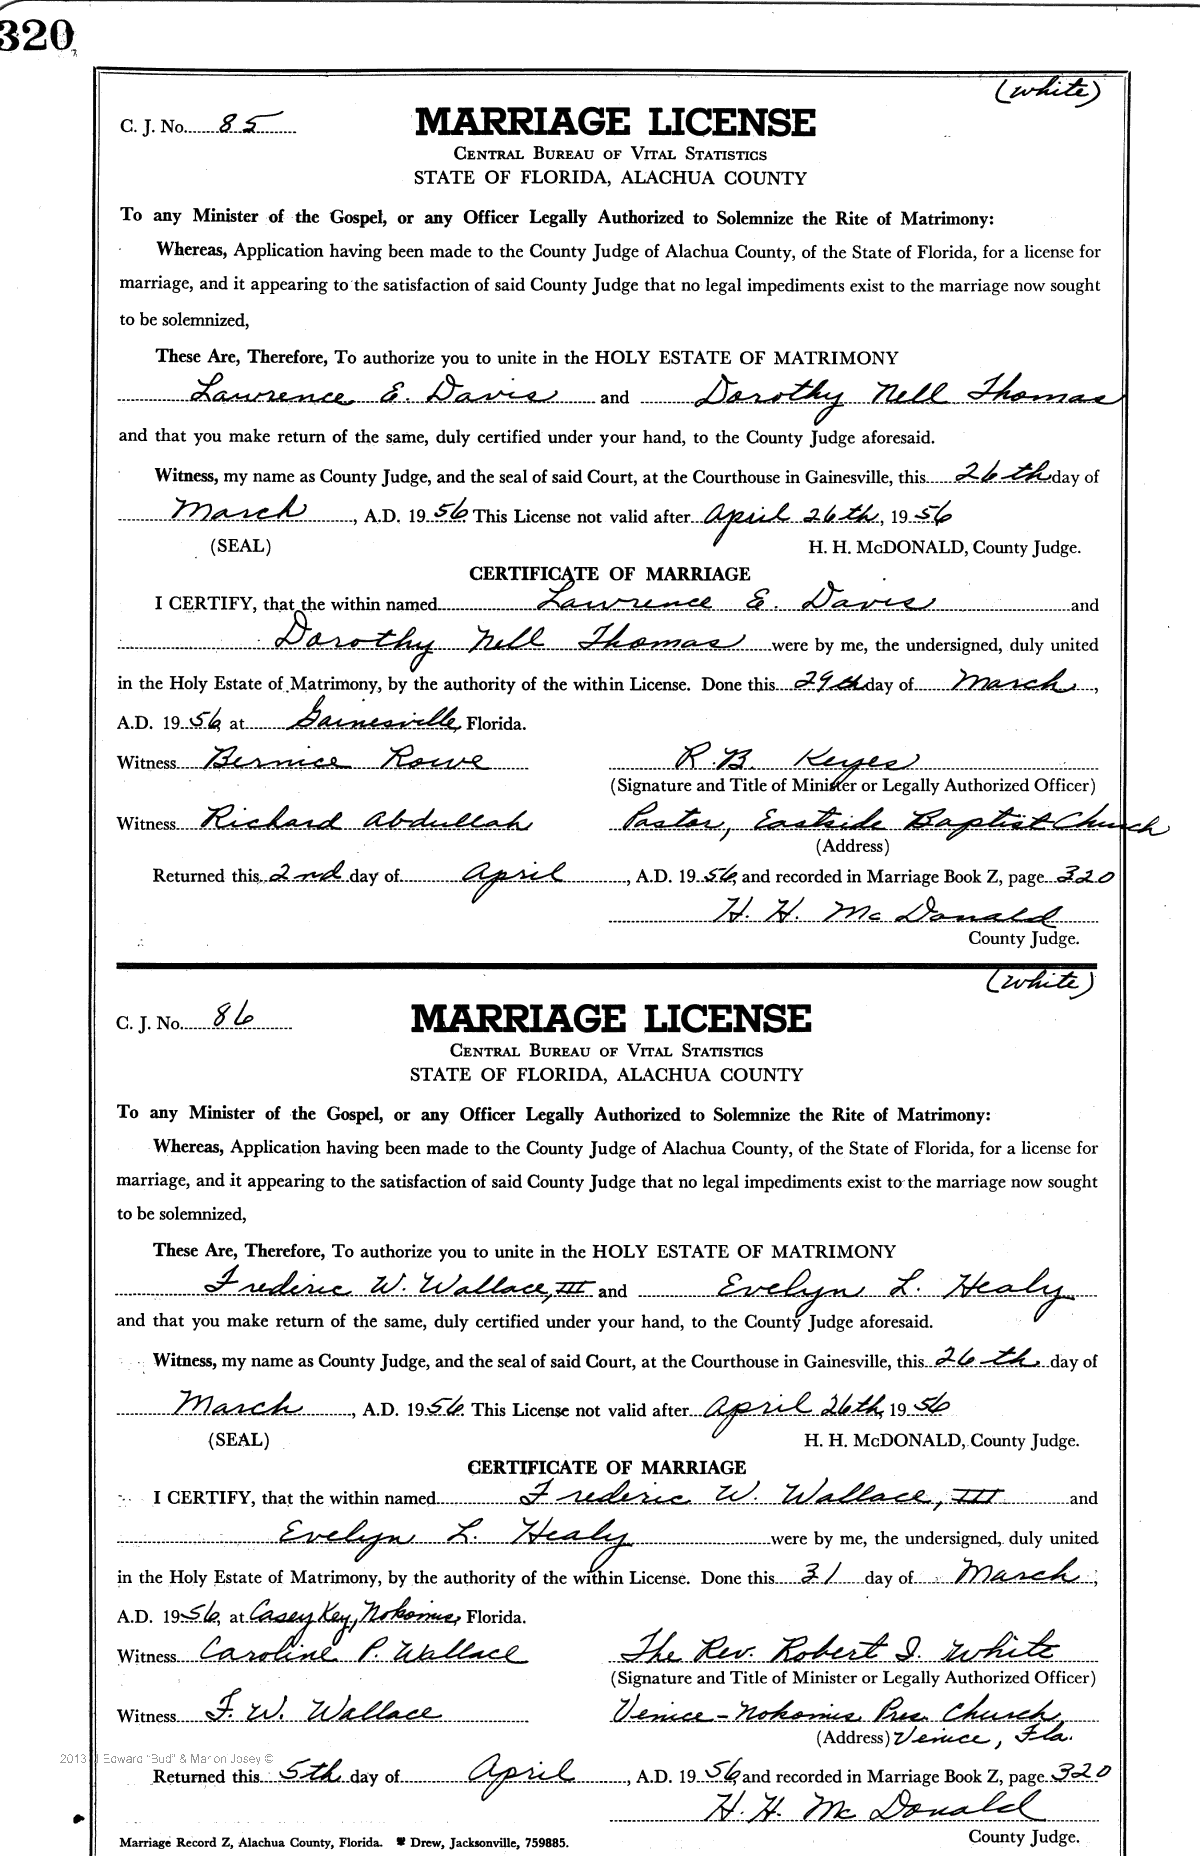 320
(white)
C. J. No. 85
MARRIAGE LICENSE
CENTRAL BUREAU OF VITAL STATISTICS
STATE OF FLORIDA, ALACHUA COUNTY
To any Minister of the Gospel, or any Officer Legally Authorized to Solemnize the Rite of Matrimony:
Whereas, Application having been made to the County Judge of Alachua County, of the State of Florida, for a license for
marriage, and it appearing to the satisfaction of said County Judge that no legal impediments exist to the marriage now sought
to be solemnized,
These Are, Therefore, To authorize you to unite in the HOLY ESTATE OF MATRIMONY
Lawrence E. Davis and Dorothy Nell Thomas
and that you make return of the same, duly certified under your hand, to the County Judge aforesaid.
Witness, my name as County Judge, and the seal of said Court, at the Courthouse in Gainesville, this 26th day of
March, A.D. 1956. This License not valid after April 26th, 1956
(SEAL) H. H. McDONALD, County Judge.
CERTIFICATE OF MARRIAGE
I CERTIFY, that the within named Lawrence E. Davis and
Dorothy Nell Thomas were by me, the undersigned, duly united
in the Holy Estate of Matrimony, by the authority of the within License. Done this 29th day of March,
A.D. 1956, at Gainesville, Florida.
Witness Bernice Rowe R. B. Keyes
(Signature and Title of Minister or Legally Authorized Officer)
Witness Richard Abdullah Pastor, Eastside Baptist Church
(Address)
Returned this 2nd day of April, A.D. 1956, and recorded in Marriage Book Z, page 320
H. H. McDonald
County Judge.
(white)
C. J. No. 86
MARRIAGE LICENSE
CENTRAL BUREAU OF VITAL STATISTICS
STATE OF FLORIDA, ALACHUA COUNTY
To any Minister of the Gospel, or any Officer Legally Authorized to Solemnize the Rite of Matrimony:
Whereas, Application having been made to the County Judge of Alachua County, of the State of Florida, for a license for
marriage, and it appearing to the satisfaction of said County Judge that no legal impediments exist to the marriage now sought
to be solemnized,
These Are, Therefore, To authorize you to unite in the HOLY ESTATE OF MATRIMONY
Frederic W. Wallace, III and Evelyn L. Healy
and that you make return of the same, duly certified under your hand, to the County Judge aforesaid.
Witness, my name as County Judge, and the seal of said Court, at the Courthouse in Gainesville, this 26th day of
March, A.D. 1956. This License not valid after April 26th, 1956
(SEAL) H. H. McDONALD, County Judge.
CERTIFICATE OF MARRIAGE
I CERTIFY, that the within named Frederic W. Wallace, III and
Evelyn L. Healy were by me, the undersigned, duly united
in the Holy Estate of Matrimony, by the authority of the within License. Done this 31 day of March,
A.D. 1956, at Casey Key, Nokomis, Florida.
Witness Caroline P. Wallace The Rev. Robert I. White
(Signature and Title of Minister or Legally Authorized Officer)
Witness F. W. Wallace Venice-Nokomis Pres. Church
(Address) Venice, Fla.
2013 J Edward "Bud" & Marion Josey ©
Returned this 5th day of April, A.D. 1956, and recorded in Marriage Book Z, page 320
H. H. McDonald
County Judge.
Marriage Record Z, Alachua County, Florida. Drew, Jacksonville, 759885.